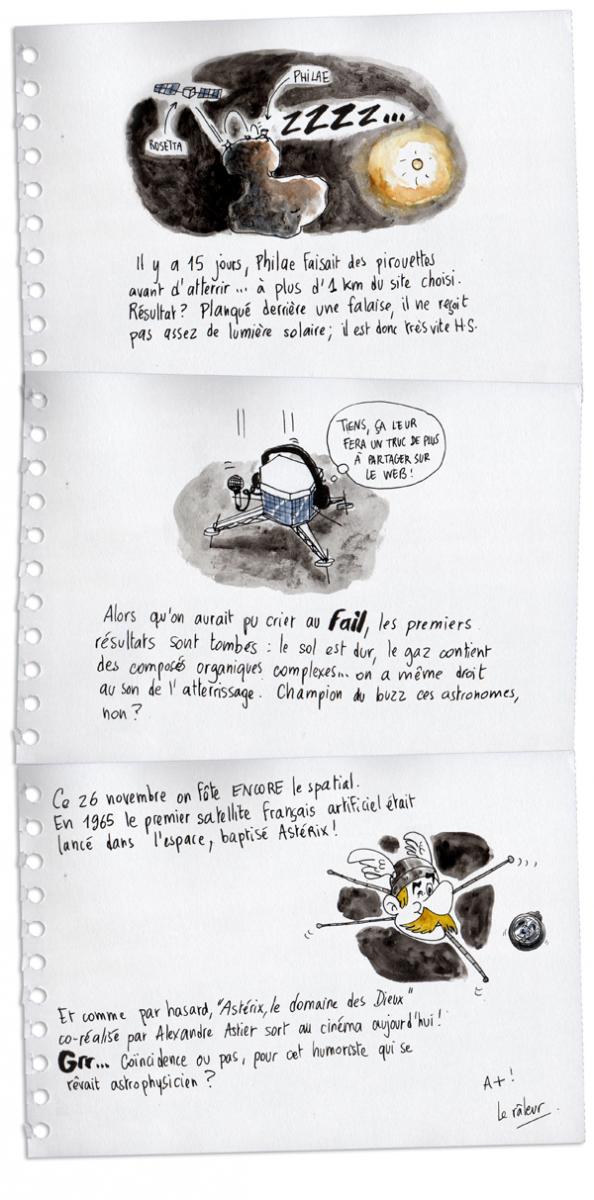 PHILAE
ZZZZ...
ROSETTA
Il y a 15 jours, Philae faisait des pirouettes
avant d'atterrir... à plus d'1 km du site choisi.
Résultat? Planqué derrière une falaise, il ne reçoit
pas assez de lumière solaire; il est donc très vite H.S.
TIENS, ÇA LEUR
FERA UN TRUC DE PLUS
À PARTAGER SUR
LE WEB!
Alors qu'on aurait pu crier au Fail, les premiers
résultats sont tombés : le sol est dur, le gaz contient
des composés organiques complexes... on a même droit
au son de l'atterrissage. Champion du buzz ces astronomes,
non?
Ce 26 novembre on fête ENCORE le spatial.
En 1965 le premier satellite français artificiel était
lancé dans l'espace, baptisé Astérix!
Et comme par hasard, "Astérix, le domaine des Dieux"
co-réalisé par Alexandre Astier sort au cinéma aujourd'hui!
Grr... Coïncidence ou pas, pour cet humoriste qui se
rêvait astrophysicien?
A+!
Le râleur.